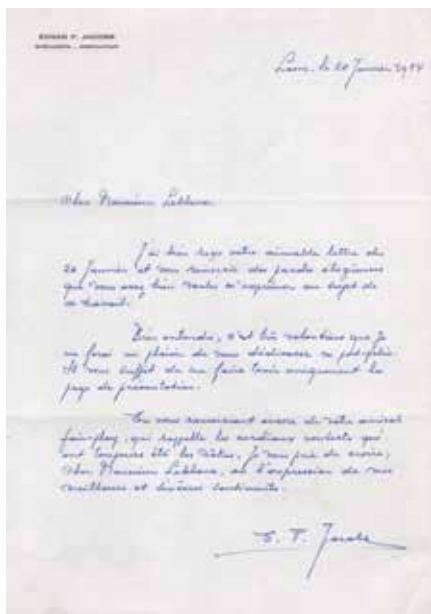 EDGAR P. JACOBS
Lasne, le 20 Janvier 1984
Cher Monsieur Leblanc
J'ai bien reçu votre aimable lettre du
20 Janvier et vous remercie des paroles élogieuses
que vous avez bien voulu m'exprimer au sujet de
ce travail.
Bien entendu, c'est très volontiers que je
me ferai un plaisir de vous dédicacer ce port-folio.
Il vous suffit de me faire tenir uniquement la
page de présentation.
En vous remerciant encore de votre amical
fair-play, qui rappelle les cordiaux contacts qui
ont toujours été les nôtres, je vous prie de croire,
cher Monsieur Leblanc, en l'expression de mes
meilleurs et sincères sentiments.
E. P. Jacobs